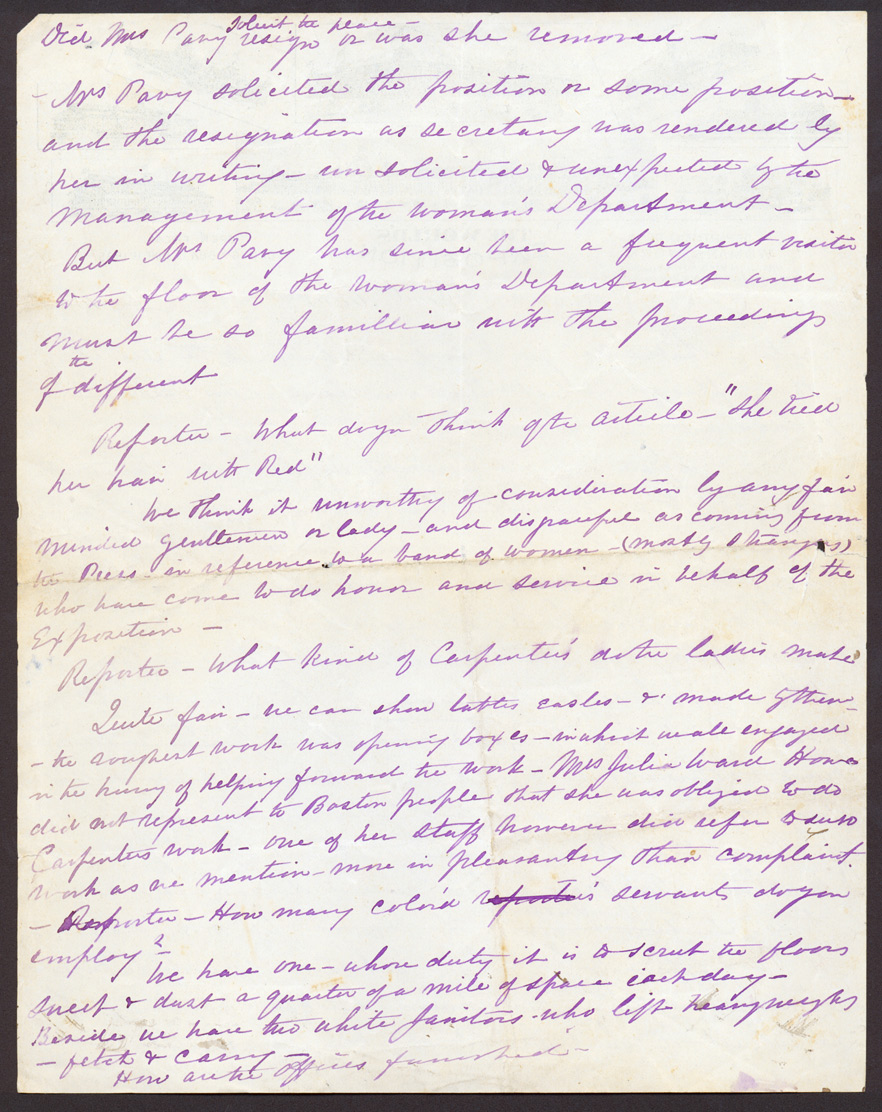 solicit the place -
Did Mrs Pavy resign or was she removed -
- Mrs Pavy solicited the position or some position -
and the resignation as secretary was rendered by
her in writing - un solicited & unexpected by the
Management of the Woman's Department -
But Mrs Pavy has since been a frequent visitor
to the floor of the Woman's Department and
must be so familliar with the proceedings
the
of different
Reporter - What do you think of the article - "She tied
her hair with Red"
We think it unworthy of consideration by any fair
minded gentlemen or lady - and disgraceful as coming from
the Press - in reference to a band of women - (mostly strangers)
who have come to do honor and service in behalf of the
Exposition -
Reporter - What kind of Carpenter's do the ladies make
Quite fair - we can show tables easles - & made by them -
- the roughest work was opening boxes - in which we all engaged
in the hurry of helping forward the work - Mrs Julia Ward Howe
did not represent to Boston people that she was obliged to do
Carpenters work - one of her staff however did refer to such
work as we mention - more in pleasantry than complaint.
- Reporter - How many colord reporter's servants do you
employ?
We have one - whose duty it is to scrub the floors
sweep & dust a quarter of a mile of space each day -
Beside we have two white Janitors - who lift heavy weights
- fetch & carry -
How are the offices furnished -